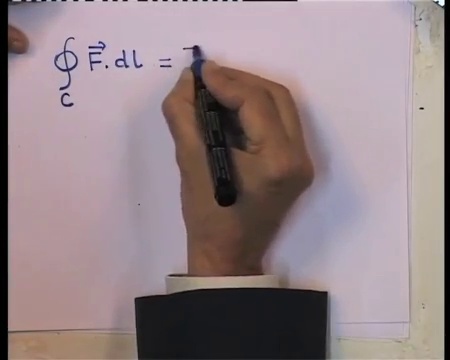 ∮_C F⃗ . dl = -